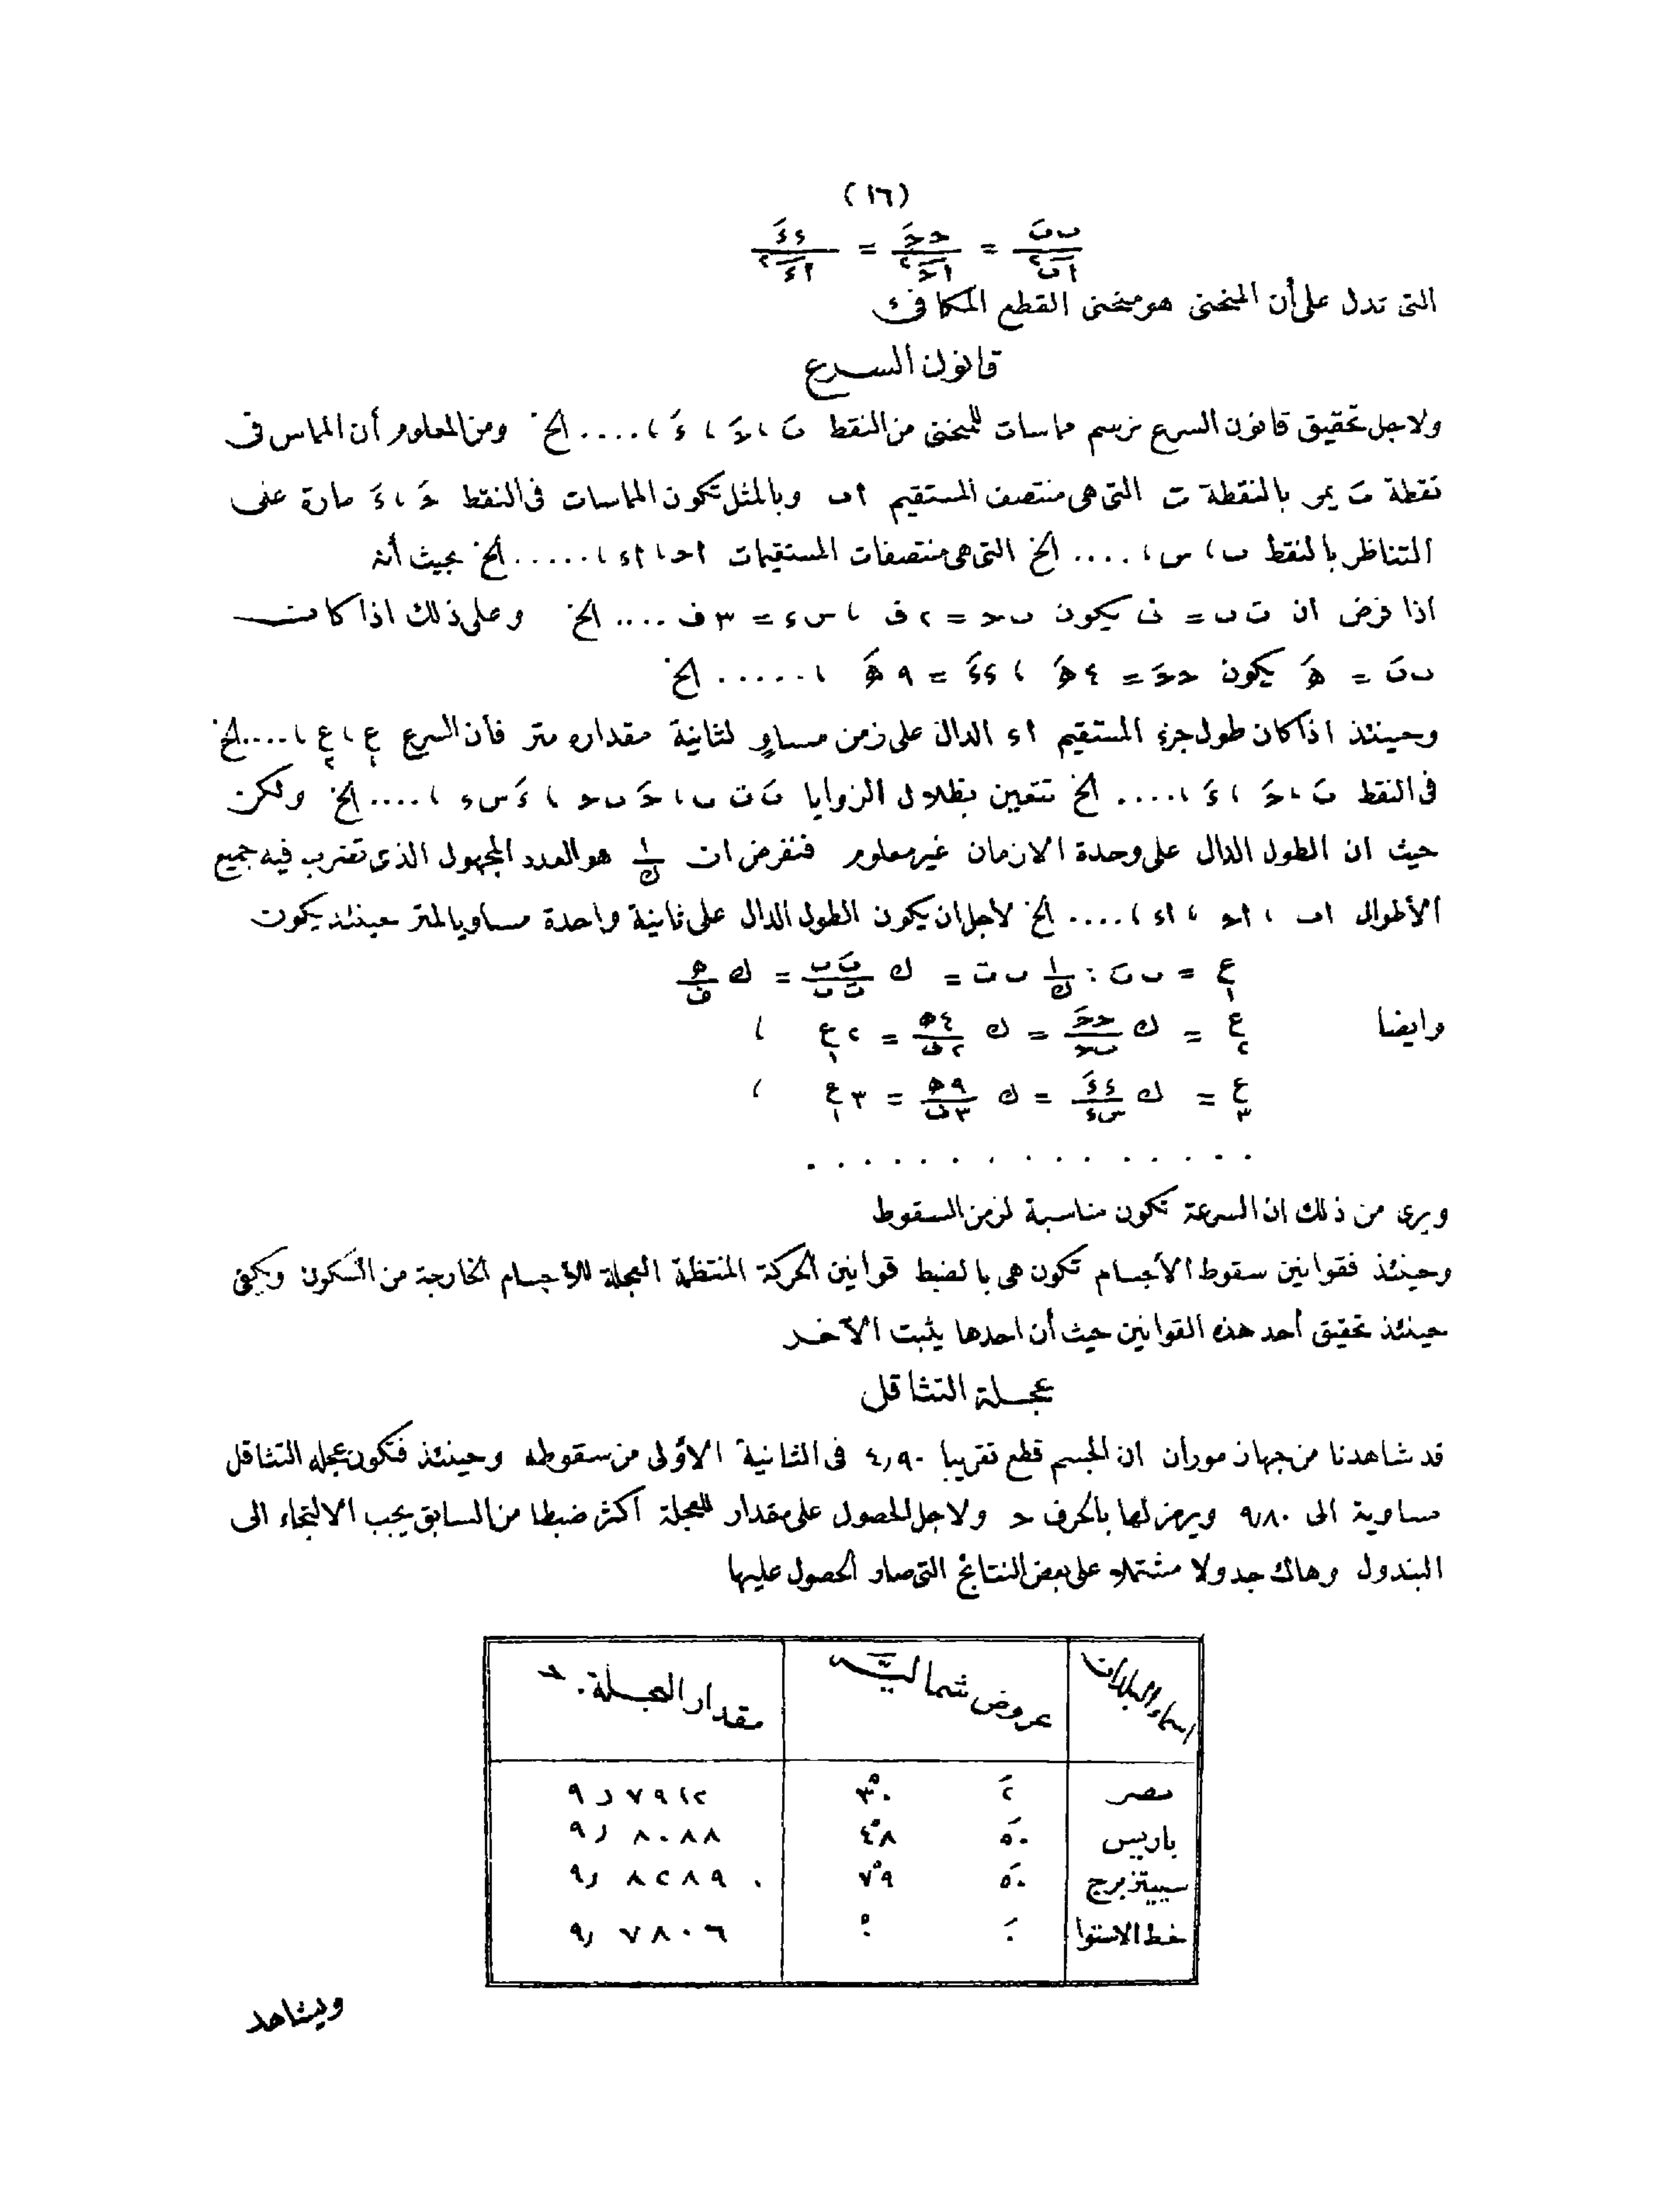 (١٦)
ٮٮَ / اٮ٢ = ححَ / اح٢ = ءءَ / اء٢
التى تدل على أن المنحنى هو منحنى القطع المكافىء
قانون السرع
ولاجل تحقيق قانون السرع نرسم مماسات للمنحنى من النقط ٮَ ، حَ ، ءَ ، .... الخ ومن المعلوم أن المماس فى
نقطة ٮَ يمر بالنقطة ت التى هى منتصف المستقيم اٮ وبالمثل تكون المماسات فى النقط حَ ، ءَ مارة على
التناظر بالنقط ٮ ، س ، .... الخ التى هى منتصفات المستقيمات اح ، اء ، ..... الخ بحيث أنه
اذا فرض ان ت ٮ = ف يكون ٮ ح = ٢ ف ، س ء = ٣ ف .... الخ وعلى ذلك اذا كانت
ٮٮَ = ھ يكون ححَ = ٤ ھ ، ءءَ = ٩ ھ ، ..... الخ
وحينئذ اذا كان طول جزء المستقيم اء الدال على زمن مساوٍ لثانية مقداره متر فأن السرع ع١ ، ع٢ ، .... الخ
فى النقط ٮَ ، حَ ، ءَ ، .... الخ تتعين بظلال الزوايا ٮَ ت ٮ ، حَ ٮ ح ، ءَ س ء ، .... الخ ولكن
حيث ان الطول الدال على وحدة الازمان غير معلوم فنفرض ان ١/ك هو العدد المجهول الذى تضرب فيه جميع
الأطوال اٮ ، اح ، اء ، .... الخ لأجل ان يكون الطول الدال على ثانية واحدة مساويا لمتر حينئذ يكون
ع١ = ٮٮَ : ١/ك ٮ ت = ك ٮَٮ / ت ٮ = ك ھ/ف
وايضا ع٢ = ك ححَ / ٮح = ك ٤ھ / ٢ف = ٢ ع١ ،
ع٣ = ك ءءَ / سء = ك ٩ھ / ٣ف = ٣ ع١ ،
. . . . . . . . . . . . . . .
ويرى من ذلك ان السرعة تكون مناسبة لزمن السقوط
وحينئذ فقوانين سقوط الأجسام تكون هى بالضبط قوانين الحركة المنتظمة العجلة للأجسام الخارجة من السكون ويكفى
حينئذ تحقيق أحد هذه القوانين حيث أن احدها يثبت الآخر
عجلة التثاقل
قد شاهدنا من جهاز موران ان الجسم قطع تقريبا ٤٫٩٠ فى الثانية الأولى من سقوطه وحينئذ فتكون عجلة التثاقل
مساوية الى ٩٫٨٠ ويرمز لها بالحرف ح ولاجل الحصول على مقدار للعجلة أكثر ضبطا من السابق يجب الالتجاء الى
البندول وهاك جدولا مشتملا على بعض النتائج التى صار الحصول عليها
اسماء البلدان عروض شمالية مقدار العجلة. ح
مصر ٢َ ٣٠° ٩٫٧٩١٢
باريس ٥٠َ ٤٨° ٩٫٨٠٨٨
سبيتزبرج ٥٠َ ٧٩° ٩٫٨٢٨٩
خط الاستوا ٠َ ٠° ٩٫٧٨٠٦
ويشاهد